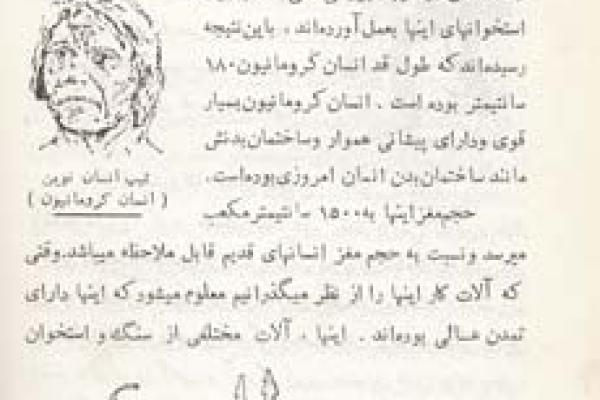 استخوانهای اینها بعمل آورده‌اند ، باین نتیجه
رسیده‌اند که طول قد انسان کرومانیون ۱۸۰
سانتیمتر بوده است . انسان کرومانیون بسیار
قوی ودارای پیشانی هموار وساختمان بدنش
مانند ساختمان بدن انسان امروزی بوده است.
حجم مغز اینها به ۱۵۰۰ سانتیمتر مکعب
تیپ انسان نوین
( انسان کرومانیون )
میرسد و نسبت به حجم مغز انسانهای قدیم قابل ملاحظه میباشد. وقتی
که آلات کار اینها را از نظر میگذرانیم معلوم میشود که اینها دارای
تمدن عالی بوده‌اند . اینها ، آلات مختلفی از سنگ و استخوان